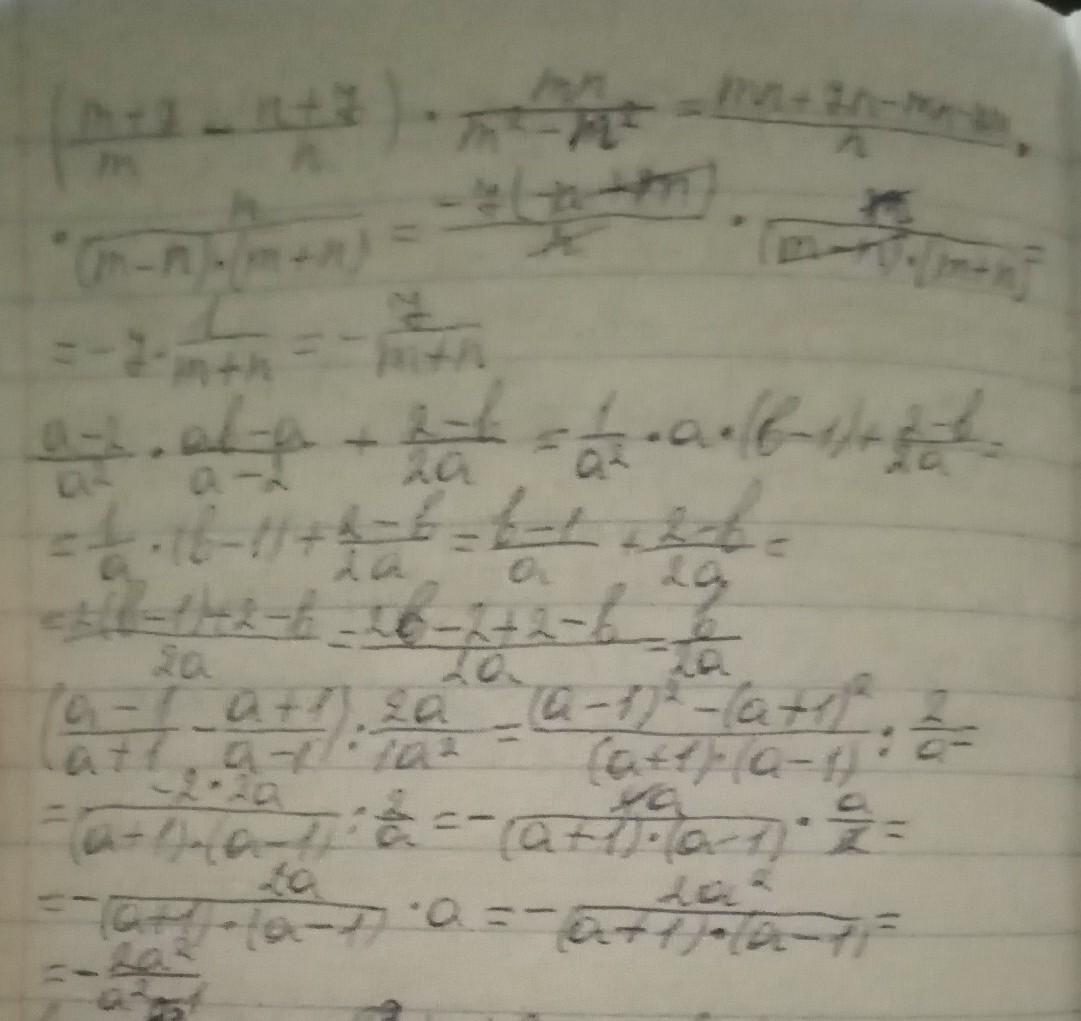 (m+7/m - n+7/n) · mn/m²-m² = mn+7n-mn-7m/n ·
· n/(m-n)·(m+n) = -7(-n+m)/n · n/(m-n)·(m+n) =
= -7 · 1/m+n = - 7/m+n
a-2/a² · ab-a/a-2 + 2-b/2a = 1/a² · a · (b-1) + 2-b/2a =
= 1/a · (b-1) + 2-b/2a = b-1/a + 2-b/2a =
= 2(b-1)+2-b/2a = 2b-2+2-b/2a = b/2a
(a-1/a+1 - a+1/a-1) : 2a/1a² = (a-1)²-(a+1)²/(a+1)·(a-1) : 2/a =
= -2·2a/(a+1)·(a-1) : 2/a = - 4a/(a+1)·(a-1) · a/2 =
= - 2a/(a+1)·(a-1) · a = - 2a²/(a+1)·(a-1) =
= - 2a²/a²-1